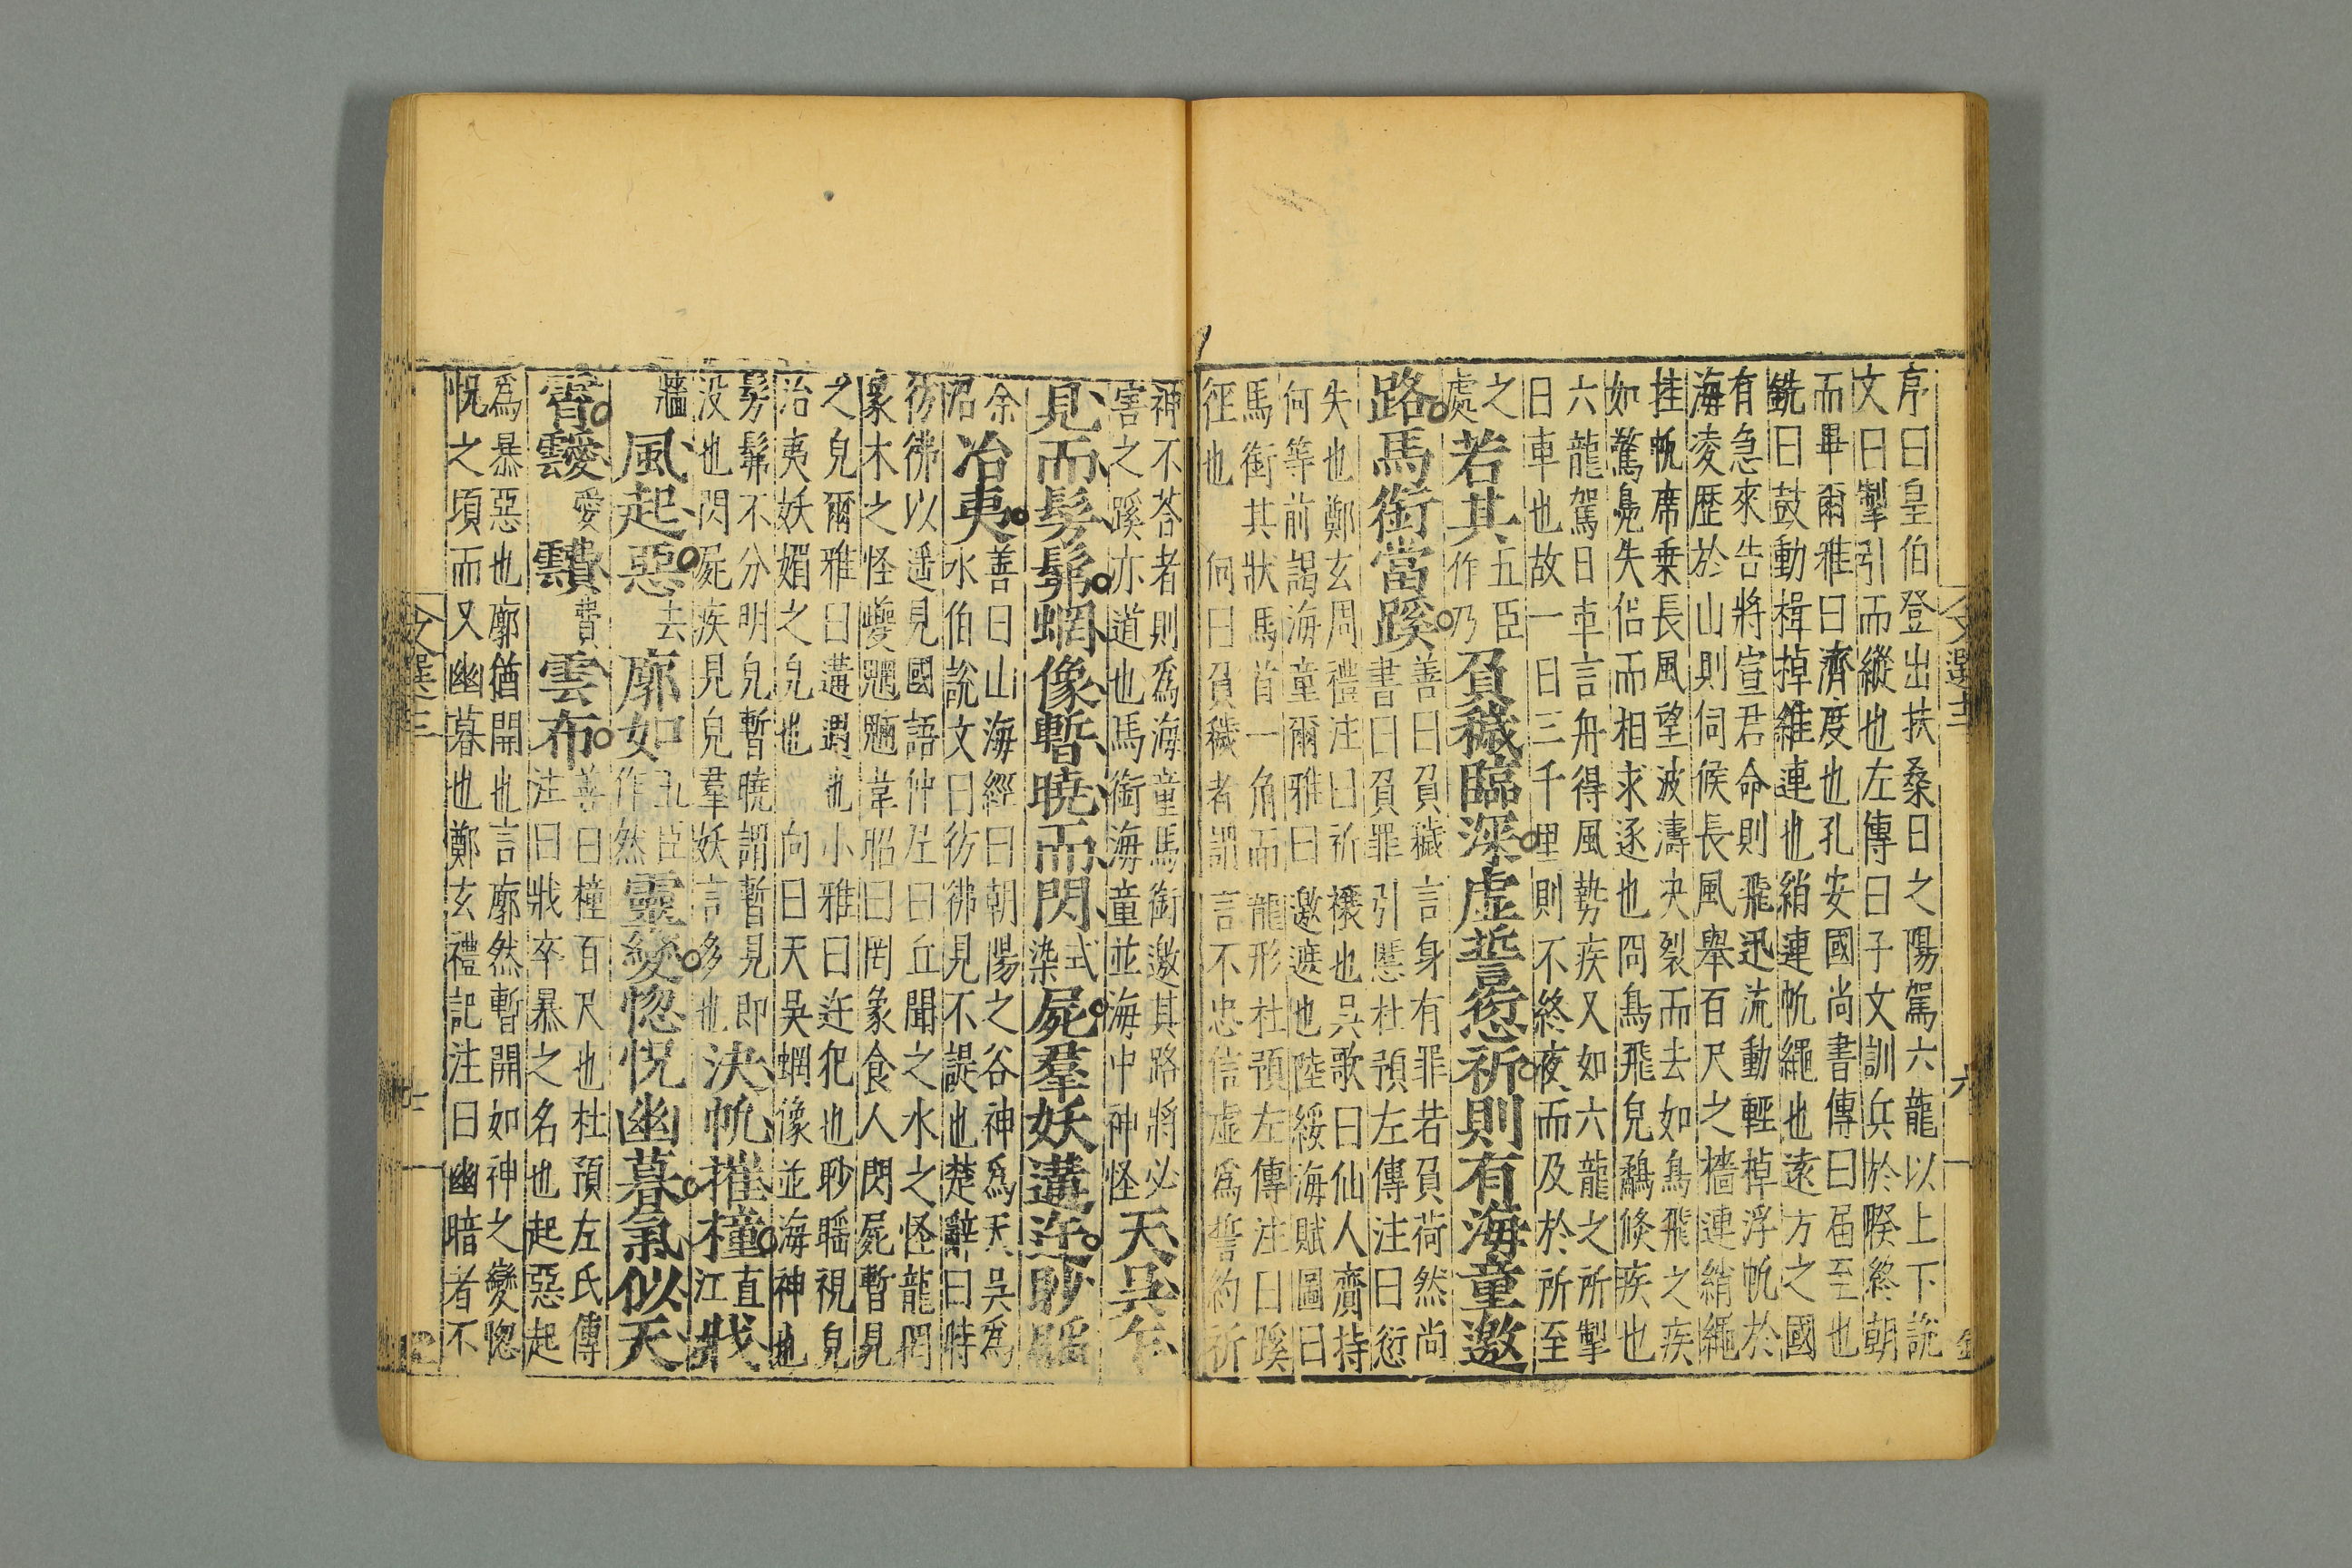 文選十二 六
序曰皇伯登出扶桑日之陽駕六龍以上下說
文曰掣引而縱也左傳曰子文訓兵於睽終朝
而畢爾雅曰濟度也孔安國尚書傳曰届至也
銑曰鼓動楫掉維連也綃連帆繩也遠方之國
有急來告將宣君命則飛迅流動輕掉浮帆於
海凌歷於山則伺候長風舉百尺之檣連綃繩
挂帆席乗長風望波濤决裂而去如鳥飛之疾
如驚鳧失侶而相求逐也冏鳥飛皃鷸倏疾也
六龍駕日車言舟得風勢疾又如六龍之所掣
日車也故一日三千里則不終夜而及於所至
之處若其五臣作乃負穢臨深虛誓愆祈則有海童邀
路馬銜當蹊善曰負穢言身有罪若負荷然尚
書曰負罪引慝杜預左傳注曰愆
失也鄭玄周禮注曰祈禳也吳歌曰仙人齎持
何等前謁海童爾雅曰邀遮也陸綏海賦圖曰
馬銜其狀馬首一角而龍形杜預左傳注曰蹊
徑也 向曰負穢者謂言不忠信虛爲誓約祈
神不荅者則爲海童馬銜邀其路將必
害之蹊亦道也馬銜海童並海中神怪天吳乍
見而髣髴蝄像暫曉而閃式染屍羣妖遘迕眇䁘
余招冶夷善曰山海經曰朝陽之谷神爲天吳爲
水伯說文曰彷彿見不諟也楚辭曰時
彷彿以遥見國語仲尼曰丘聞之水之怪龍罔
象木之怪夔魍魎韋昭曰罔象食人閃屍暫見
之皃爾雅曰遘遇也小雅曰迕犯也眇䁘視皃
冶夷妖媚之皃也 向曰天吳蝄像並海神也
髣髴不分明皃暫曉謂暫見即
没也閃屍疾見皃羣妖言多也決帆摧橦直江戕
牆風起惡去廓如五臣作然靈變惚怳幽暮氣似天
霄靉愛靅費雲布善曰橦百尺也杜預左氏傳
注曰戕卒暴之名也起惡起
爲暴惡也廓猶開也言廓然暫開如神之變惚
怳之頃而又幽暮也鄭玄禮記注曰幽暗者不